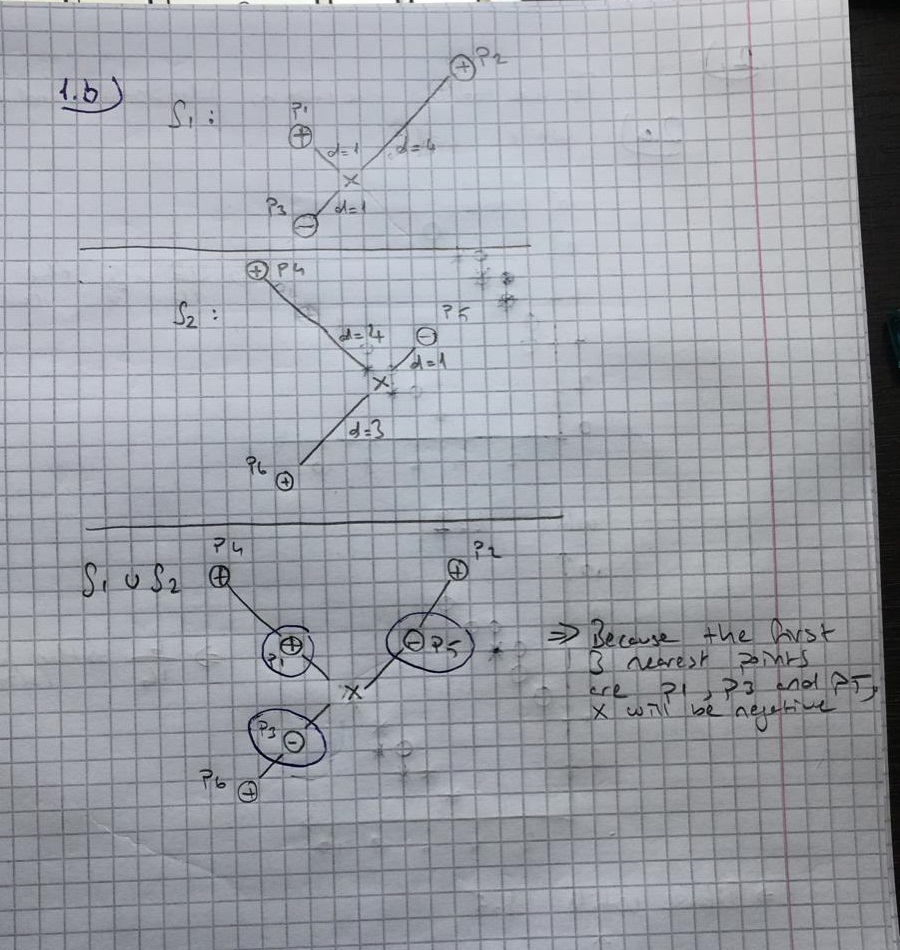 1.b)
S1 :
P1
+
P2
+
d=1
d=4
x
P3
-
d=1
+ P4
S2 :
P5
-
d=4
d=1
x
d=3
P6
+
S1 ∪ S2
P4
+
P2
+
+
P1
- P5
x
P3
-
P6
+
⇒ Because the first
3 nearest points
are P1, P3 and P5,
X will be negative